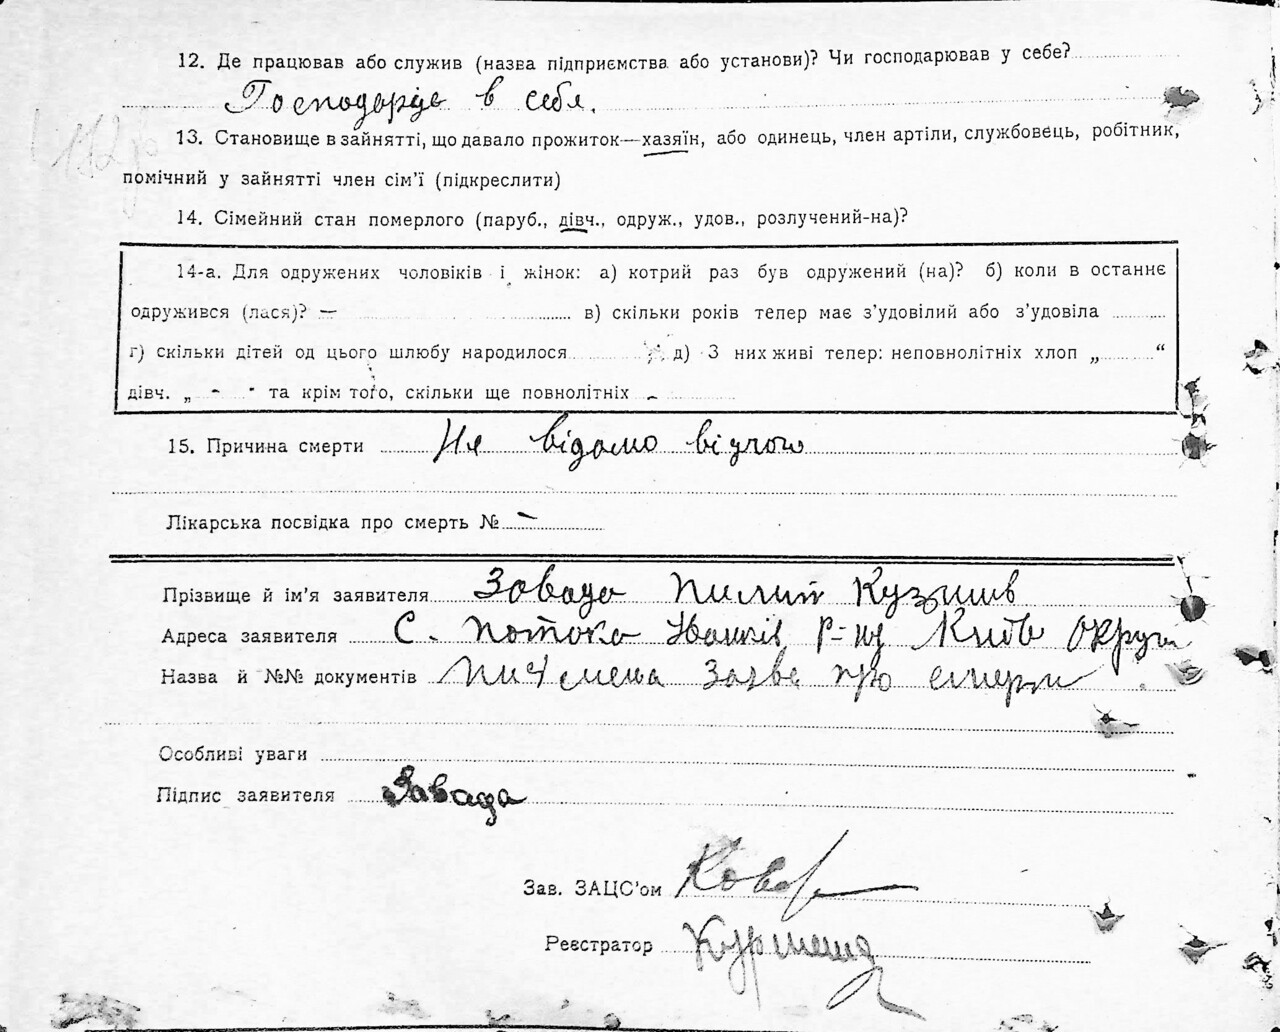 12. Де працював або служив (назва підприємства або установи)? Чи господарював у себе?
Господарує в себя.
13. Становище в зайнятті, що давало прожиток—хазяїн, або одинець, член артіли, службовець, робітник,
помічний у зайнятті член сім’ї (підкреслити)
14. Сімейний стан померлого (паруб., дівч., одруж., удов., розлучений-на)?
14-а. Для одружених чоловіків і жінок: а) котрий раз був одружений (на)? б) коли в останнє
одружився (лася)? — в) скільки років тепер має з’удовілий або з’удовіла
г) скільки дітей од цього шлюбу народилося д) З них живі тепер: неповнолітніх хлоп „ “
дівч. „ - " та крім того, скільки ще повнолітніх -
15. Причина смерти Не відомо відчого
Лікарська посвідка про смерть № —
Прізвище й ім’я заявителя Завада Пилип
Адреса заявителя С. Потока р-ну Київ Округи
Назва й №№ документів про смерти
Особливі уваги
Підпис заявителя Завада
Зав. ЗАЦС’ом
Реєстратор